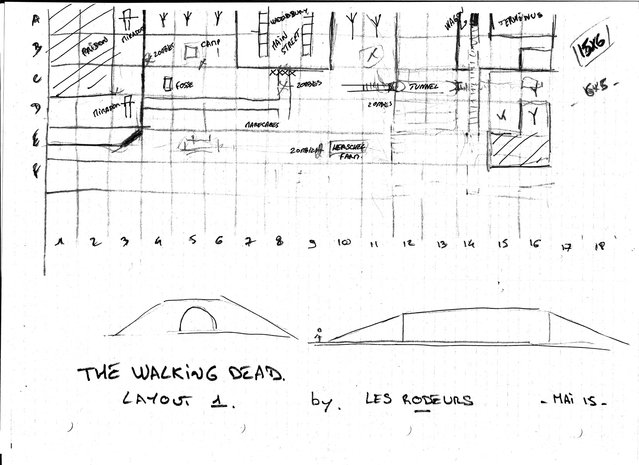 A
MIRADOR
WOODBURY
WAGON
TERMINUS
B
PRISON
ZOMBIES
CAMP 1
MAIN
STREET
X
15x6
C
FOSSE
XXXX
ZOMBIES
TUNNEL
6x5
D
MIRADOR
ZOMBIES
MARECAGES
E
ZOMBIES
HERSCHEL
FARM
F
1 2 3 4 5 6 7 8 9 10 11 12 13 14 15 16 17 18
THE WALKING DEAD.
LAYOUT 1. by. LES RODEURS - MAI 15 -